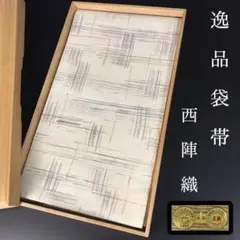 逸品袋帯
西陣織